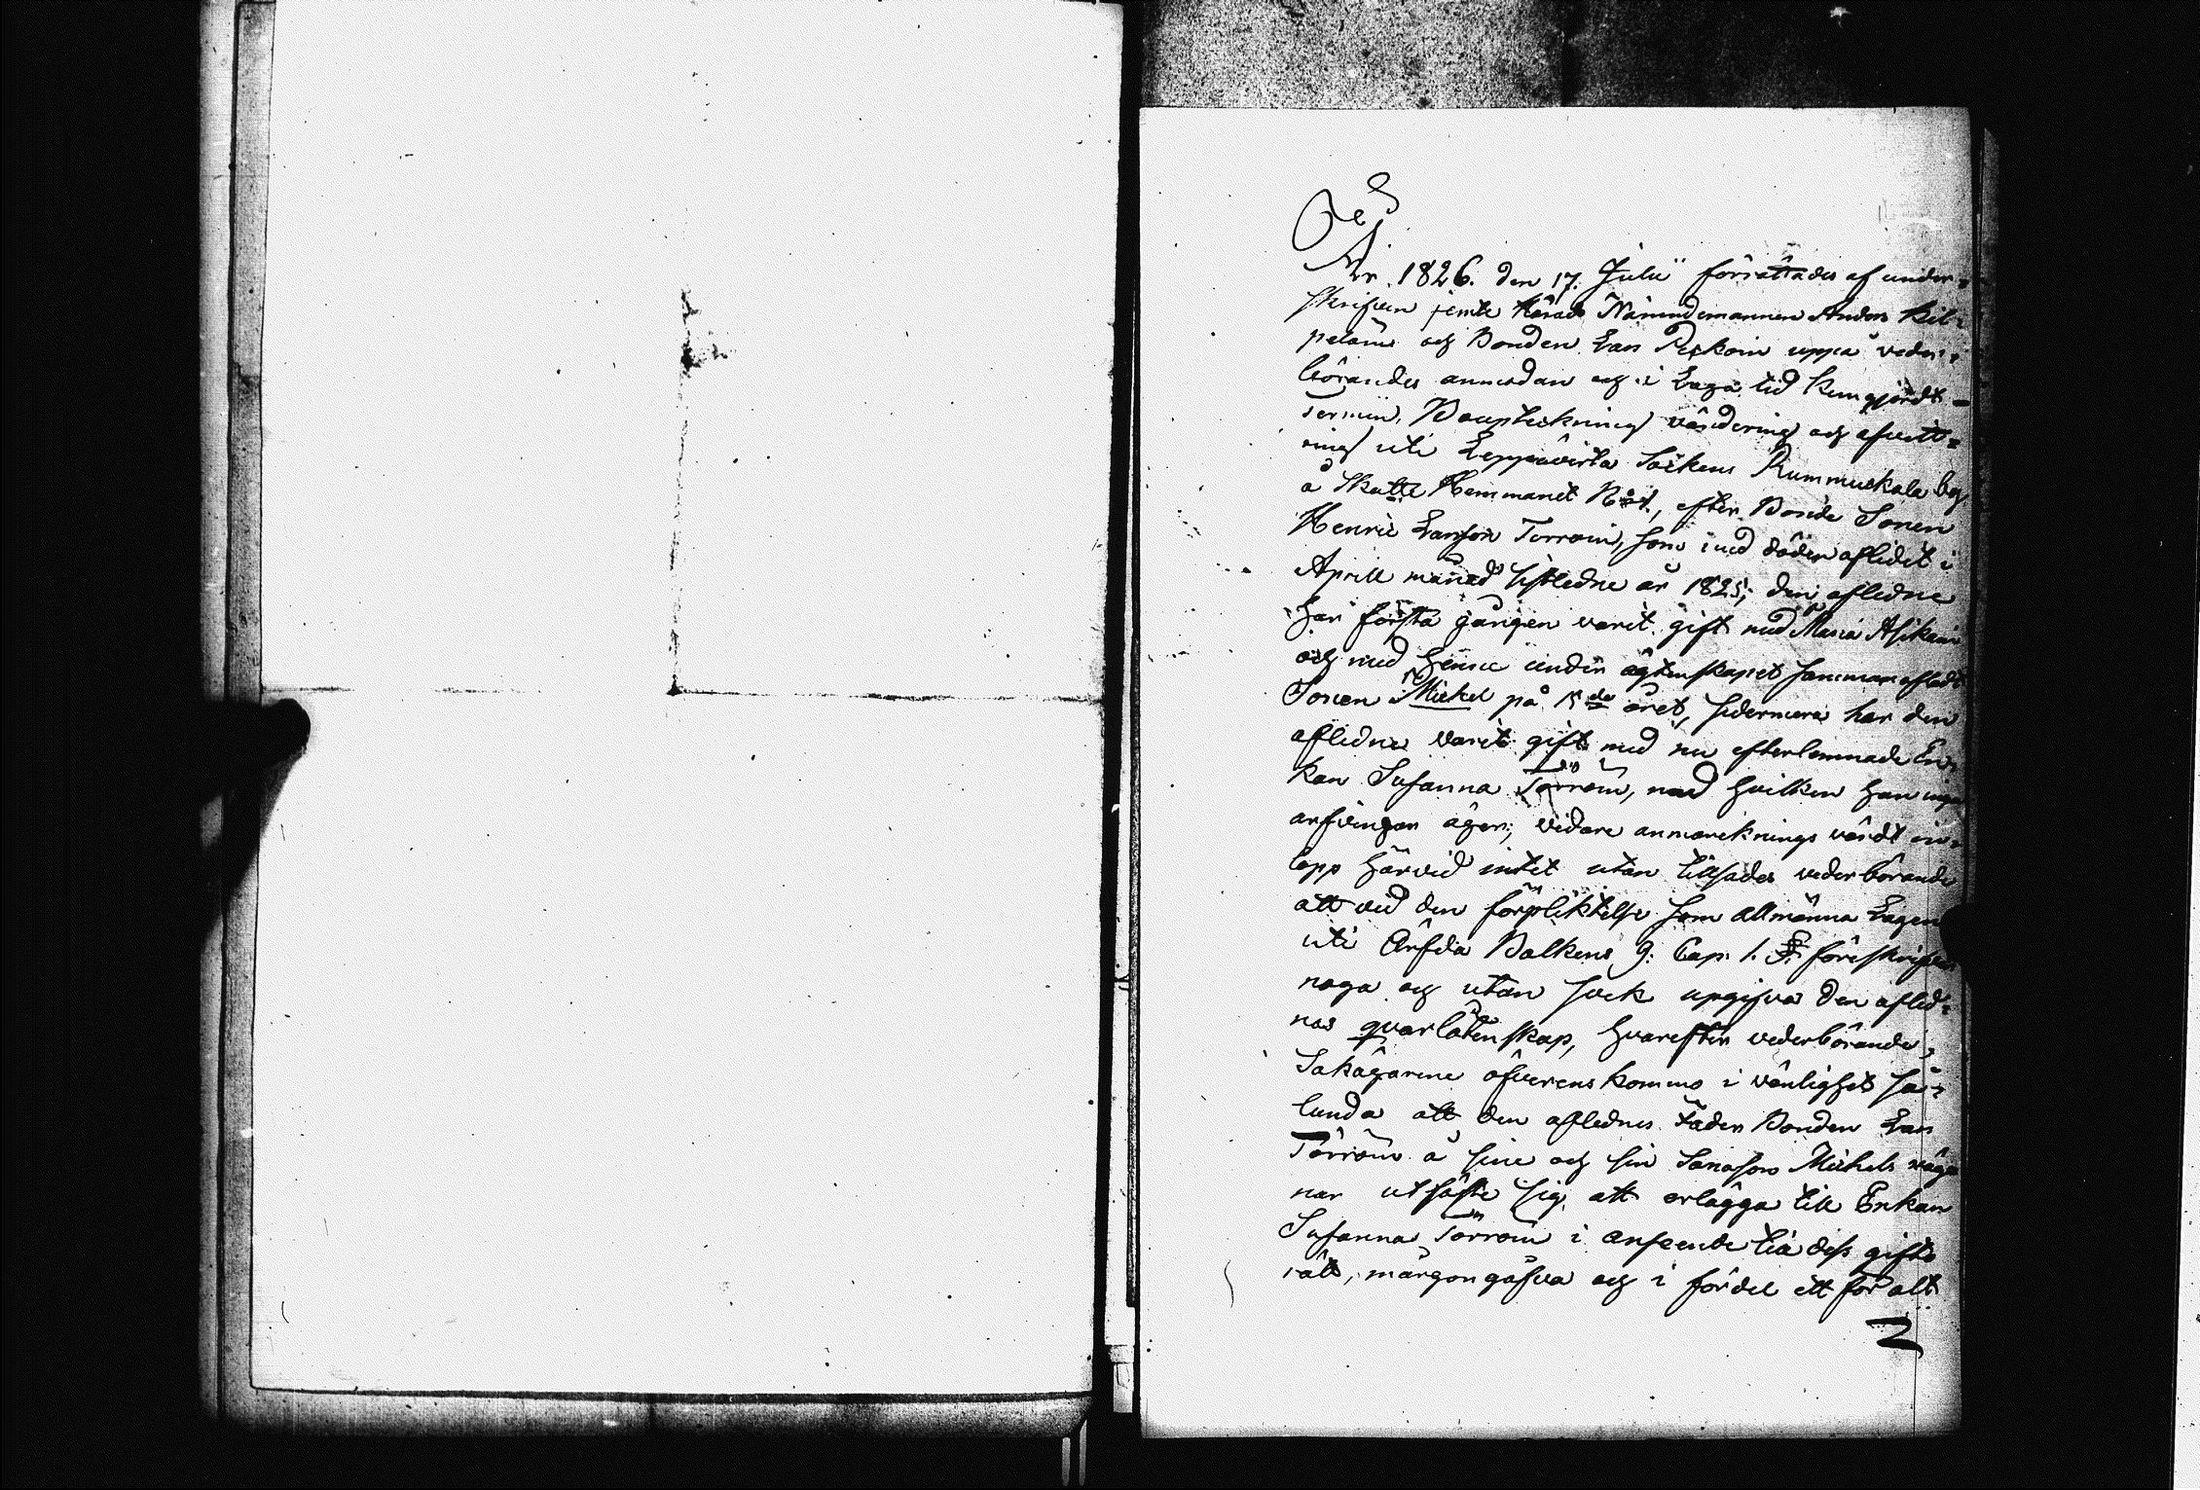 År 1826. den 17. Julii författades af under=
skrifven jemte Härads Nämndemannen Anders Kil=
peläin och Bonden Lars Peckoin uppå veder=
börandes anmodan och i Laga tid kungjordt
termin, Bouptekning värdering och afvitt=
ring uti Leppävirta Socken Rummukkala by
å Skatte Hemmanet No 1, efter Bonde Sonen
Henric Larsson Torroin, som med döden aflidit i
Aprill månad sistledne år 1825; den aflidne
har första gången varit gift med Maria Asikain
och med henne under ägtenskapet sammanaflat
Sonen Mickel på 15de året, sedermera har den
aflidne varit gift med nu efterlemnade En=
kan Susanna Törröin, med hvilken han inga
arfvingar äger; vidare anmärcknings värdt in=
lopp härvid intet utan tillsades vederbörande
att vid den förpliktelse som allmänna Lagen
uti Ärfda Balkens 9: Cap: 1. §. föreskrifver
noga och utan svek upgifva den aflid=
nas qvarlåtenskap, hvarefter vederbörande
Sakägarene öfverenskommo i vänlighet så=
lunda att den aflednes Fader Bonden Lars
Törröin å sine och sin Sonason Mickels väg=
nar utfäste sig att erlägga till Enkan
Susanna Törröin i anseende till dess gifto
rätt, morgongåfva och i fördel ett för alt